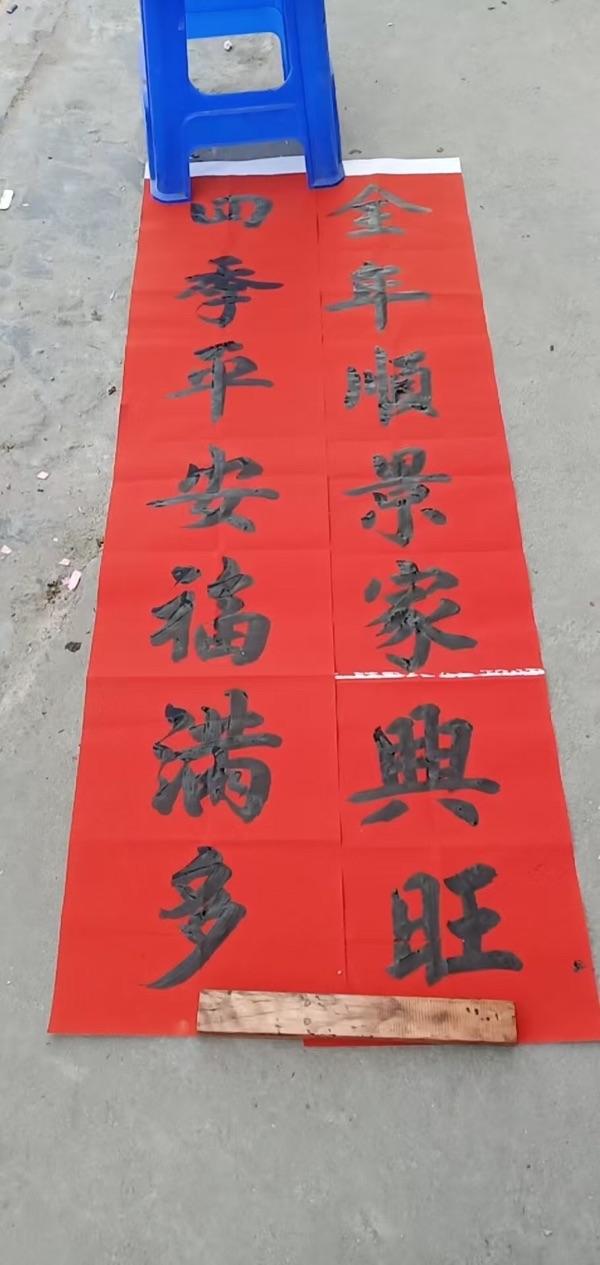 全年順景家興旺
四季平安福滿多